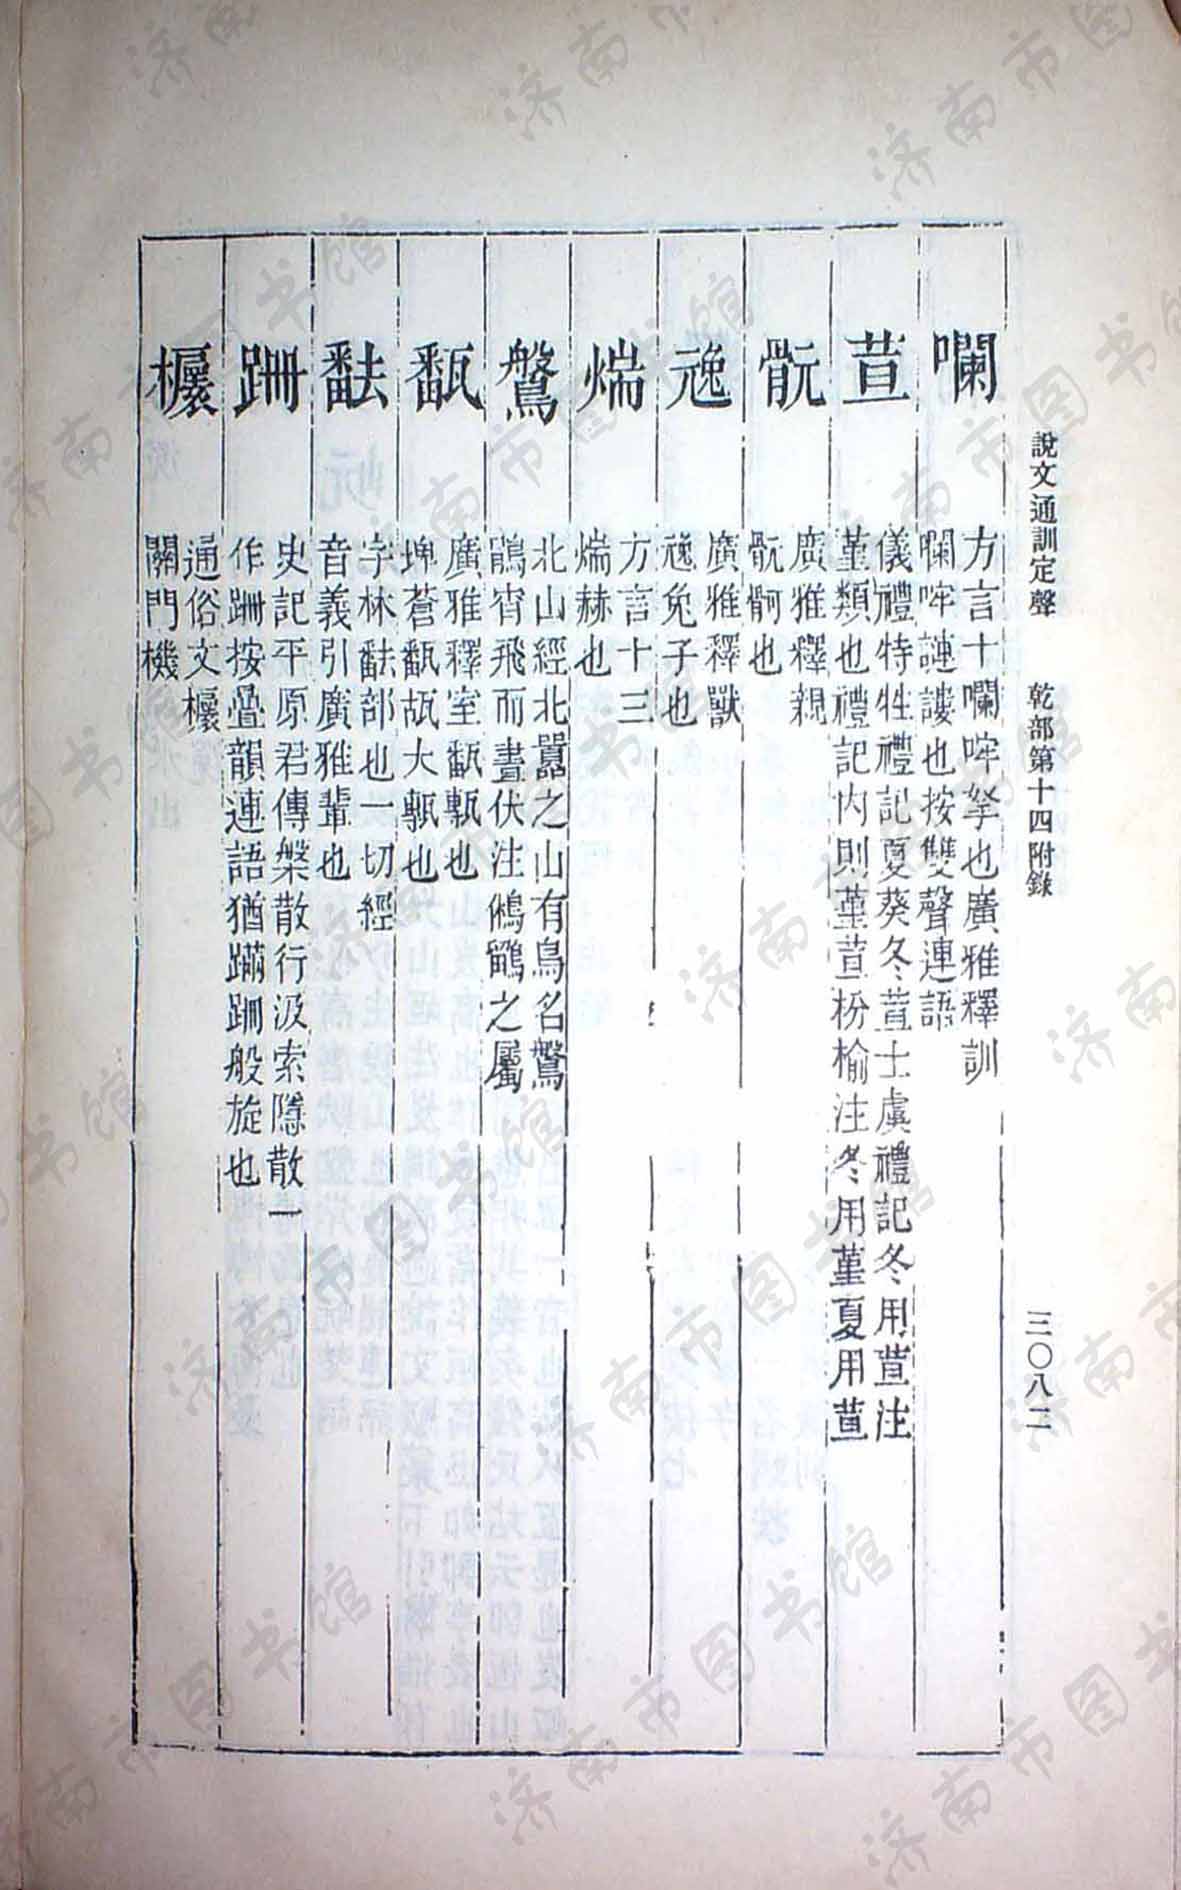 說文通訓定聲　乾部第十四附錄　三〇八二
㘓
方言十㘓哰挐也廣雅釋訓
㘓哰謰謱也按雙聲連語
荁
儀禮特牲禮記夏葵冬荁士虞禮記冬用荁注
堇類也禮記內則堇荁枌榆注冬用堇夏用荁
廣雅釋親
也
廣雅釋獸
兔子也
煓
方言十三
煓赫也
𪄀
北山經北囂之山有鳥名𪄀
鵑宵飛而晝伏注鵂鶹之屬
㽃
廣雅釋室㽃甎也
埤蒼㽃瓳大甎也
字林部也一切經
音義引廣雅輩也
跚
史記平原君傳槃散行汲索隱散一
作跚按疊韻連語猶蹣跚般旋也
通俗文
關門機